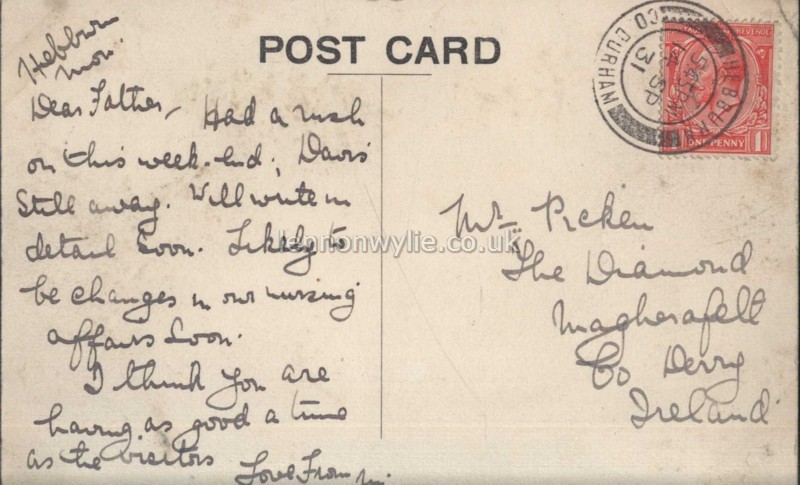 POST CARD
Hebburn
Mon.
Dear Father, Had a rush
on this week-end, Davis'
still away. Will write in
detail soon. Likely to
be changes in our nursing
affairs soon.
I think you are
having as good a time
as the visitors Love From
Mr. Picken
The Diamond
Magherafelt
Co Derry
Ireland
lennonwylie.co.uk
HEBBURN
CO. DURHAM
31
REVENUE
ONE PENNY